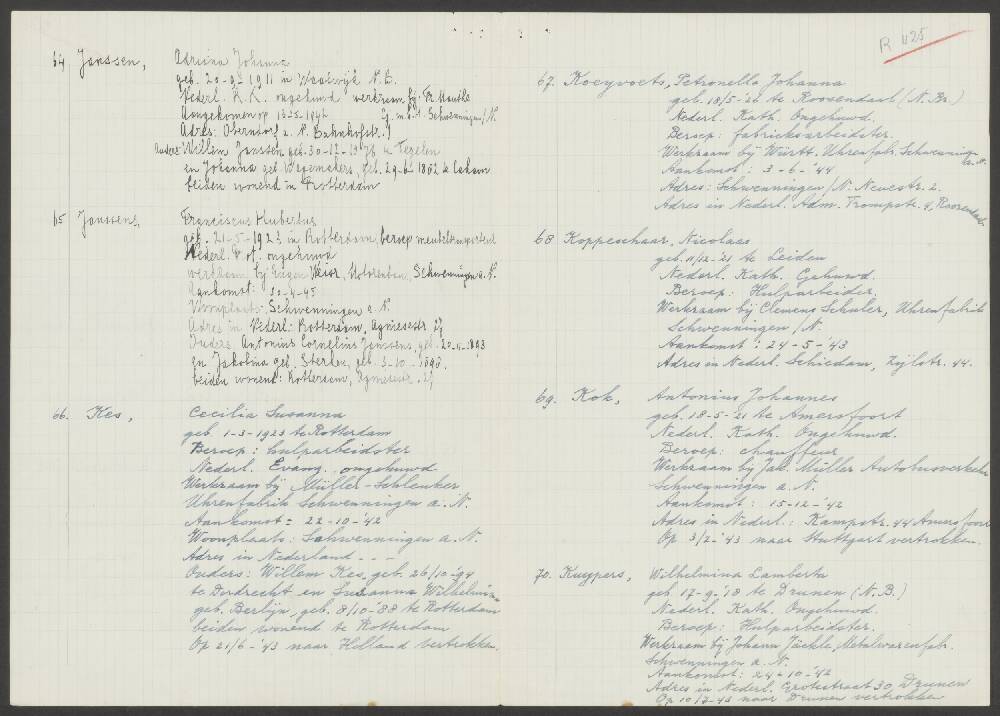 R 1125
64 Janssen, Adriana Johanna
geb. 20-9-1911 in Waalwijk N.B.
Nederl. R.K. ongehuwd werkzaam bij: Fr. Mauthe
Aangekomen op 13-5-1942 G.m.b.H. Schwenningen/N.
Adres: Oberndorf a. N. Bahnhofstr. 1
Ouders: Willem Janssen geb. 30-12-1876 te Tegelen
en Johanna geb. Wagemakers, geb. 29-6-1862 te
beiden wonend in Rotterdam
65 Janssens, Franciscus Hubertus
geb. 21-5-1923 in Rotterdam, beroep
Nederl. ongehuwd
werkzaam bij Eugen Motorenbau, Schwenningen a. N.
Aankomst: 30-4-43
Woonplaats: Schwenningen a. N.
Adres in Nederl.: Rotterdam, Agniesestr.
Ouders Antonius Cornelius Janssens, geb. 20-11-1893
en Jakolina geb. Sterken, geb. 3-10-1896
beiden wonend: Rotterdam, Agniesestr.
66. Kes, Cecilia Susanna
geb. 1-3-1923 te Rotterdam
Beroep: hulparbeidster
Nederl. Evang. ongehuwd
Werkzaam bij Müller-Schlenker
Uhrenfabrik Schwenningen a. N.
Aankomst: 22-10-'42
Woonplaats: Schwenningen a. N.
Adres in Nederland - - -
Ouders: Willem Kes, geb. 26/10-'94
te Dordrecht en Susanna Wilhelmina
geb. Berlijn, geb. 8/10-'88 te Rotterdam
beiden wonend te Rotterdam
Op 21/6-'43 naar Holland vertrokken.
67. Koeyvoets, Petronella Johanna
geb. 18/5-'21 te Roosendaal (N.Br.)
Nederl. Kath. Ongehuwd.
Beroep: fabrieksarbeidster.
Werkzaam bij Württ. Uhrenfabr. Schwenningen a. N.
Aankomst: 3-6-'44
Adres: Schwenningen/N. Neuestr. 2.
Adres in Nederl. Adm. Trompstr. 9, Roosendaal
68 Koppeschaar, Nicolaas
geb. 11/12-'21 te Leiden
Nederl. Kath. Gehuwd.
Beroep: Hulparbeider.
Werkzaam bij Clemens Schuler, Uhrenfabrik
Schwenningen/N.
Aankomst: 24-5-'43
Adres in Nederl. Schiedam, Zijlstr. 44.
69. Kok, Antonius Johannes
geb. 18-5-'21 te Amersfoort
Nederl. Kath. Ongehuwd.
Beroep: chauffeur
Werkzaam bij Jak. Müller Autobusverkehr
Schwenningen a. N.
Aankomst: 15-12-'42
Adres in Nederl.: Kampstr. 44 Amersfoort
Op 3/2-'43 naar Stuttgart vertrokken.
70. Kuypers, Wilhelmina Lamberta
geb. 17-9-'18 te Drunen (N.B.)
Nederl. Kath. Ongehuwd.
Beroep: Hulparbeidster.
Werkzaam bij Johann Jäckle, Metalwarenfabr.
Schwenningen a. N.
Aankomst: 24-10-'42
Adres in Nederl. Grotestraat 30 Drunen
Op 10/7-'43 naar Drunen vertrokken